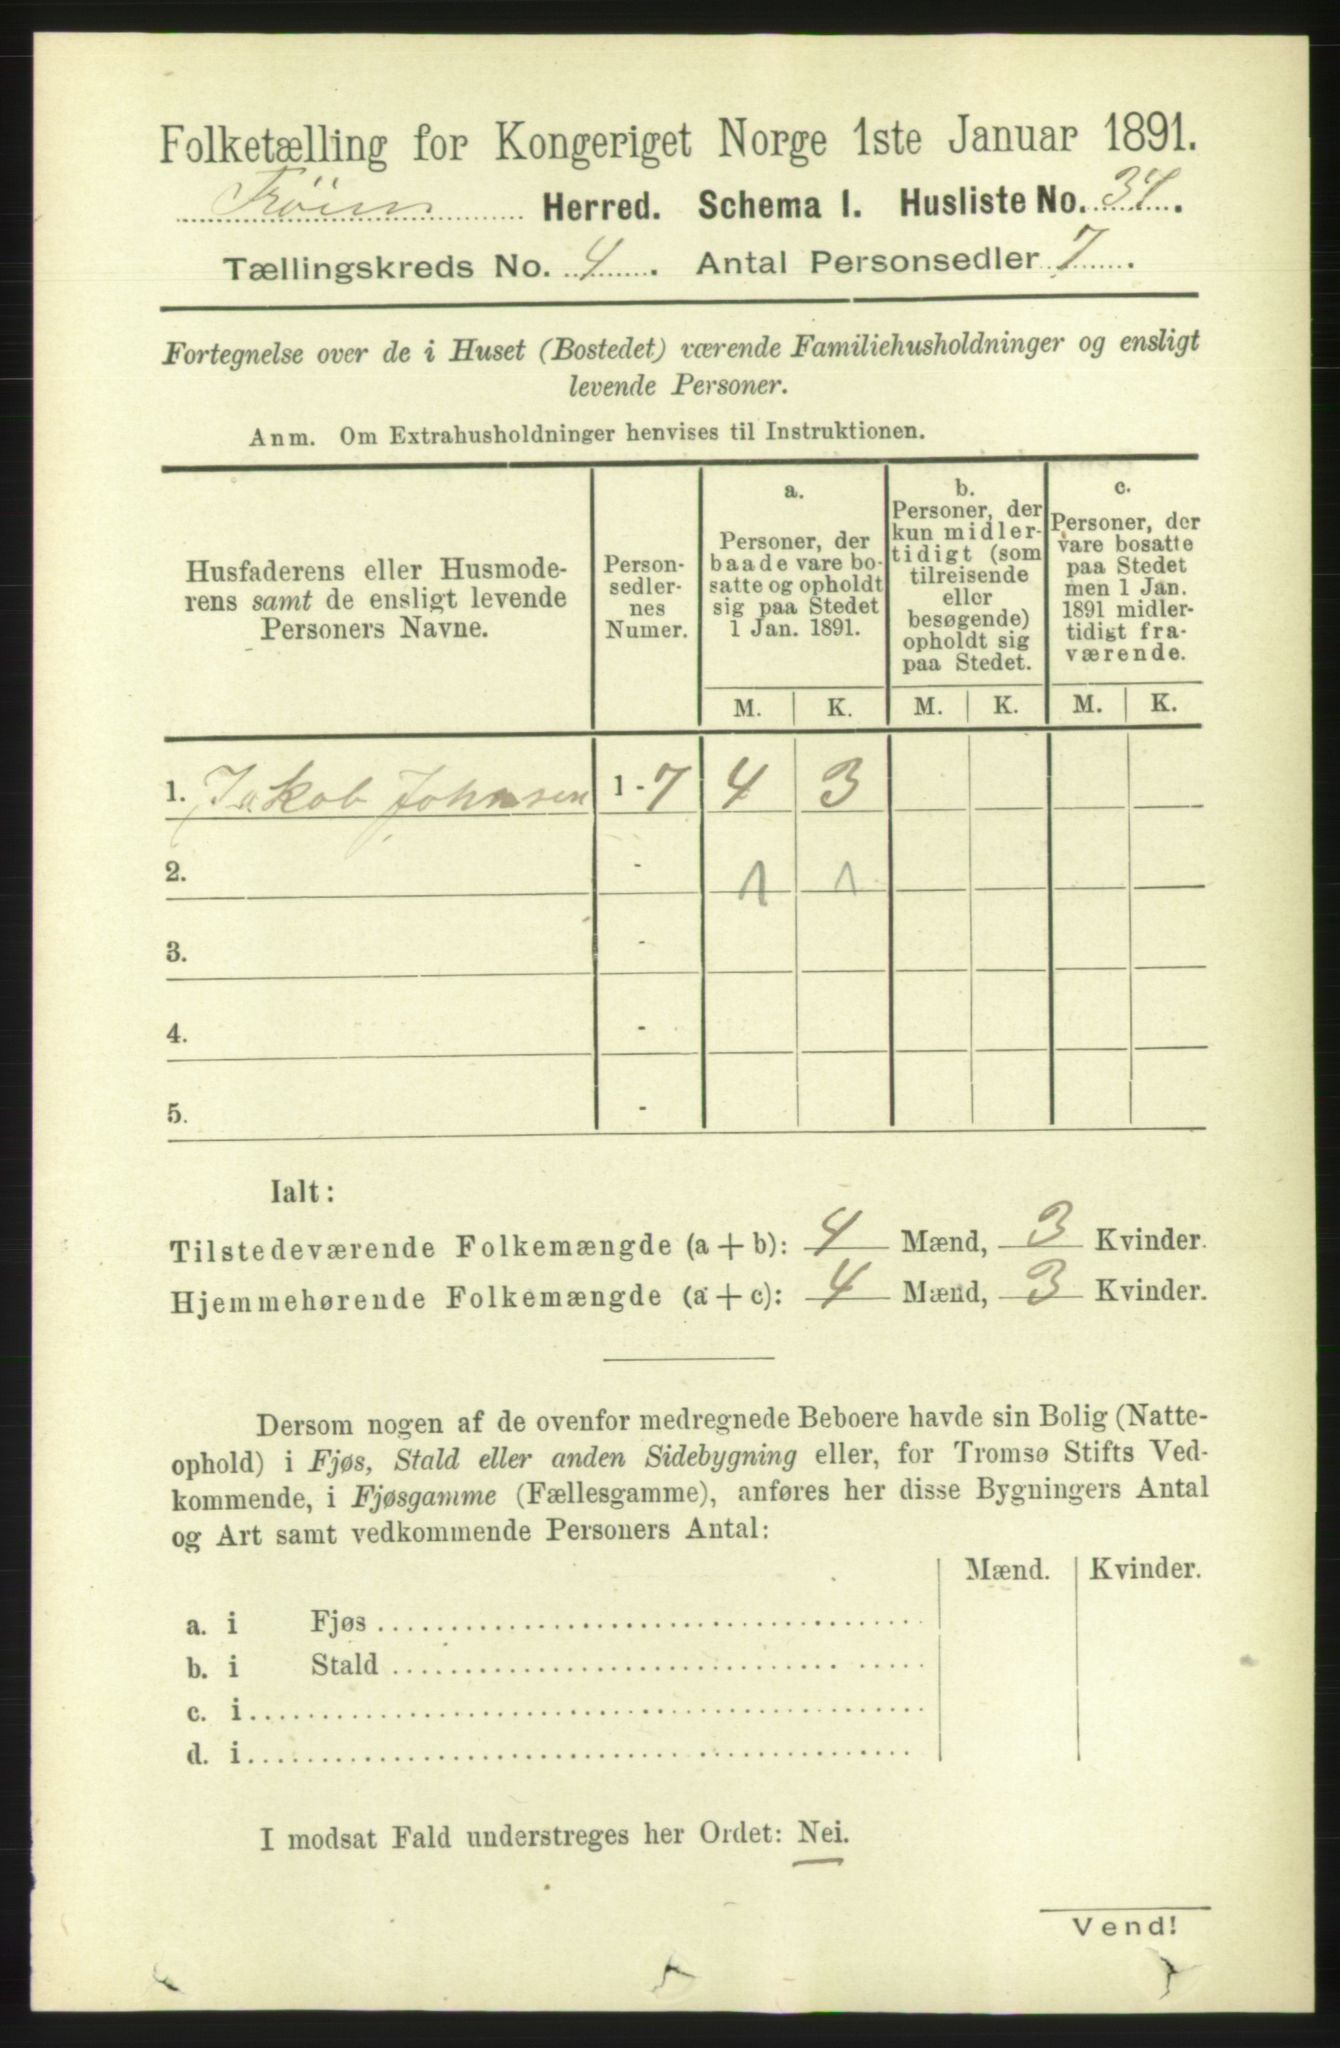 Folketælling for Kongeriget Norge 1ste Januar 1891.
Herred. Schema I. Husliste No. 34.
Tællingskreds No. 4. Antal Personsedler 7.
Fortegnelse over de i Huset (Bostedet) værende Familiehusholdninger og ensligt
levende Personer.
Anm. Om Extrahusholdninger henvises til Instruktionen.
Husfaderens eller Husmode-
rens samt de ensligt levende
Personers Navne.
Person-
sedler-
nes
Numer.
a.
Personer, der
baade vare bo-
satte og opholdt
sig paa Stedet
1 Jan. 1891.
b.
Personer, der
kun midler-
tidigt (som
tilreisende
eller
besøgende)
opholdt sig
paa Stedet.
c.
Personer, der
vare bosatte
paa Stedet
men 1 Jan.
1891 midler-
tidigt fra-
værende.
M. K. M. K. M. K.
1. Jakob Johnsen 1 - 7 4 3
2. - 1 1
3. -
4. -
5. -
Ialt:
Tilstedeværende Folkemængde (a + b): 4 Mænd, 3 Kvinder.
Hjemmehørende Folkemængde (a + c): 4 Mænd, 3 Kvinder.
Dersom nogen af de ovenfor medregnede Beboere havde sin Bolig (Natte-
ophold) i Fjøs, Stald eller anden Sidebygning eller, for Tromsø Stifts Ved-
kommende, i Fjøsgamme (Fællesgamme), anføres her disse Bygningers Antal
og Art samt vedkommende Personers Antal:
Mænd. Kvinder.
a. i Fjøs
b. i Stald
c. i
d. i
I modsat Fald understreges her Ordet: Nei.
Vend!